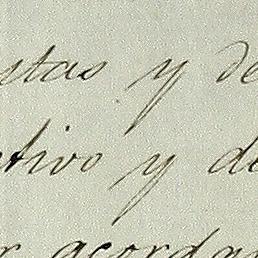 stas y de
tivo y de
r acordar